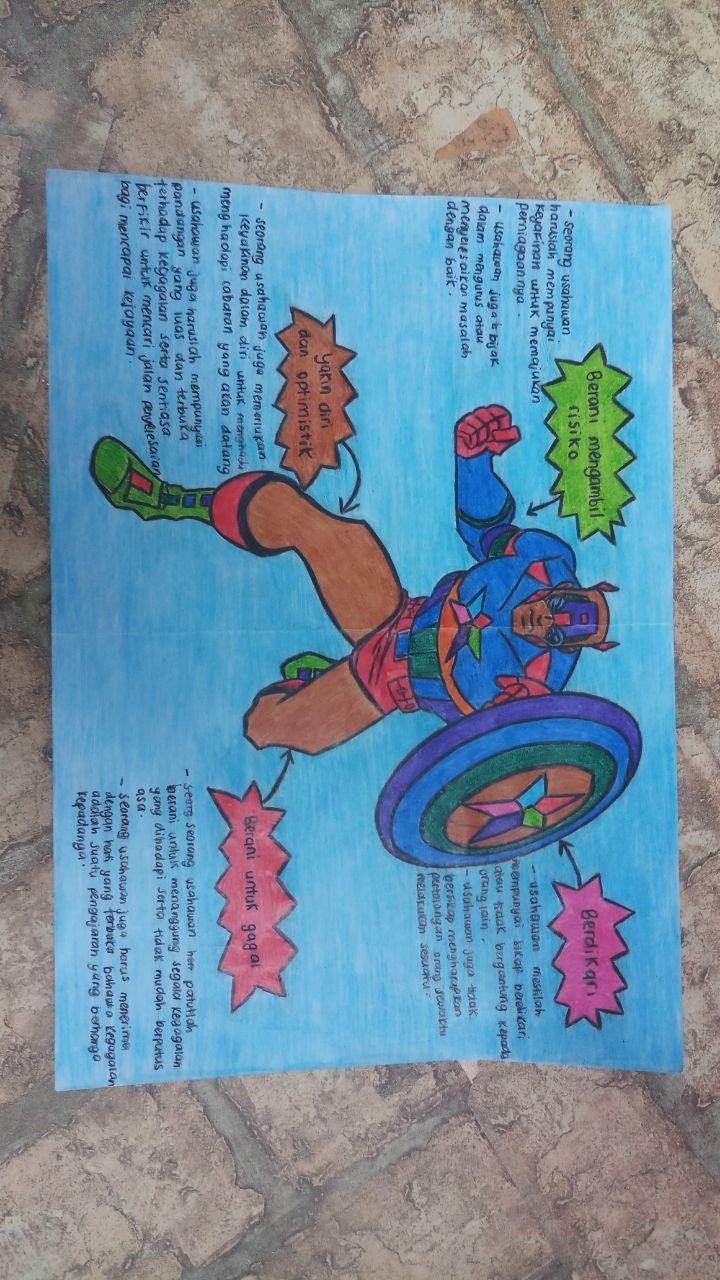 Berani mengambil
risiko
- seorang usahawan
haruslah mempunyai
keyakinan untuk memajukan
perniagaannya.
- usahawan juga bijak
dalam mengurus atau
menyelesaikan masalah
dengan baik.
Yakin diri
dan optimistik
- seorang usahawan juga memerlukan
keyakinan dalam diri untuk
menghadapi cabaran yang akan datang
- usahawan juga haruslah mempunyai
pandangan yang luas dan terbuka
terhadap kegagalan serta sentiasa
berfikir untuk mencari jalan penyelesaian
bagi mencapai kejayaan.
Berdikari
- usahawan mestilah
mempunyai sikap berdikari
atau tidak bergantung kepada
orang lain.
- usahawan juga tidak
bersikap mengharapkan
pertolongan orang sewaktu
melakukan sesuatu.
Berani untuk gagal
- seorg seorang usahawan patutlah
berani untuk menanggung segala kegagalan
yang dihadapi serta tidak mudah berputus
asa.
- seorang usahawan juga harus menerima
dengan hati yang terbuka bahawa kegagalan
adalah suatu pengajaran yang berharga
kepadanya.